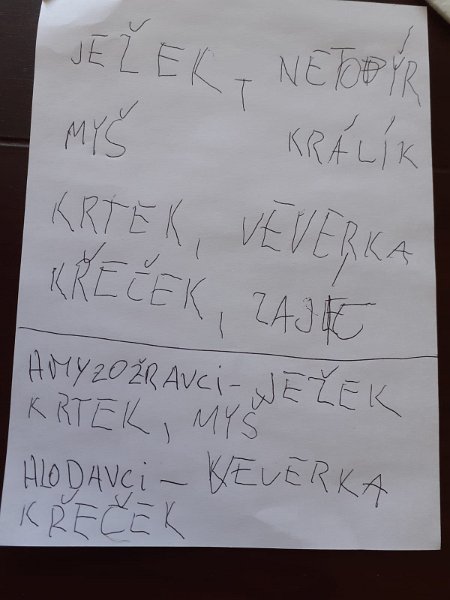 JEŽEK, NETOPÝR
MYŠ KRÁLÍK
KRTEK, VĚVERKA
KŘEČEK, ZAJÍC
HMYZOŽRAVCI - JEŽEK
KRTEK, MYŠ
HLODAVCI - VEVERKA
KŘEČEK